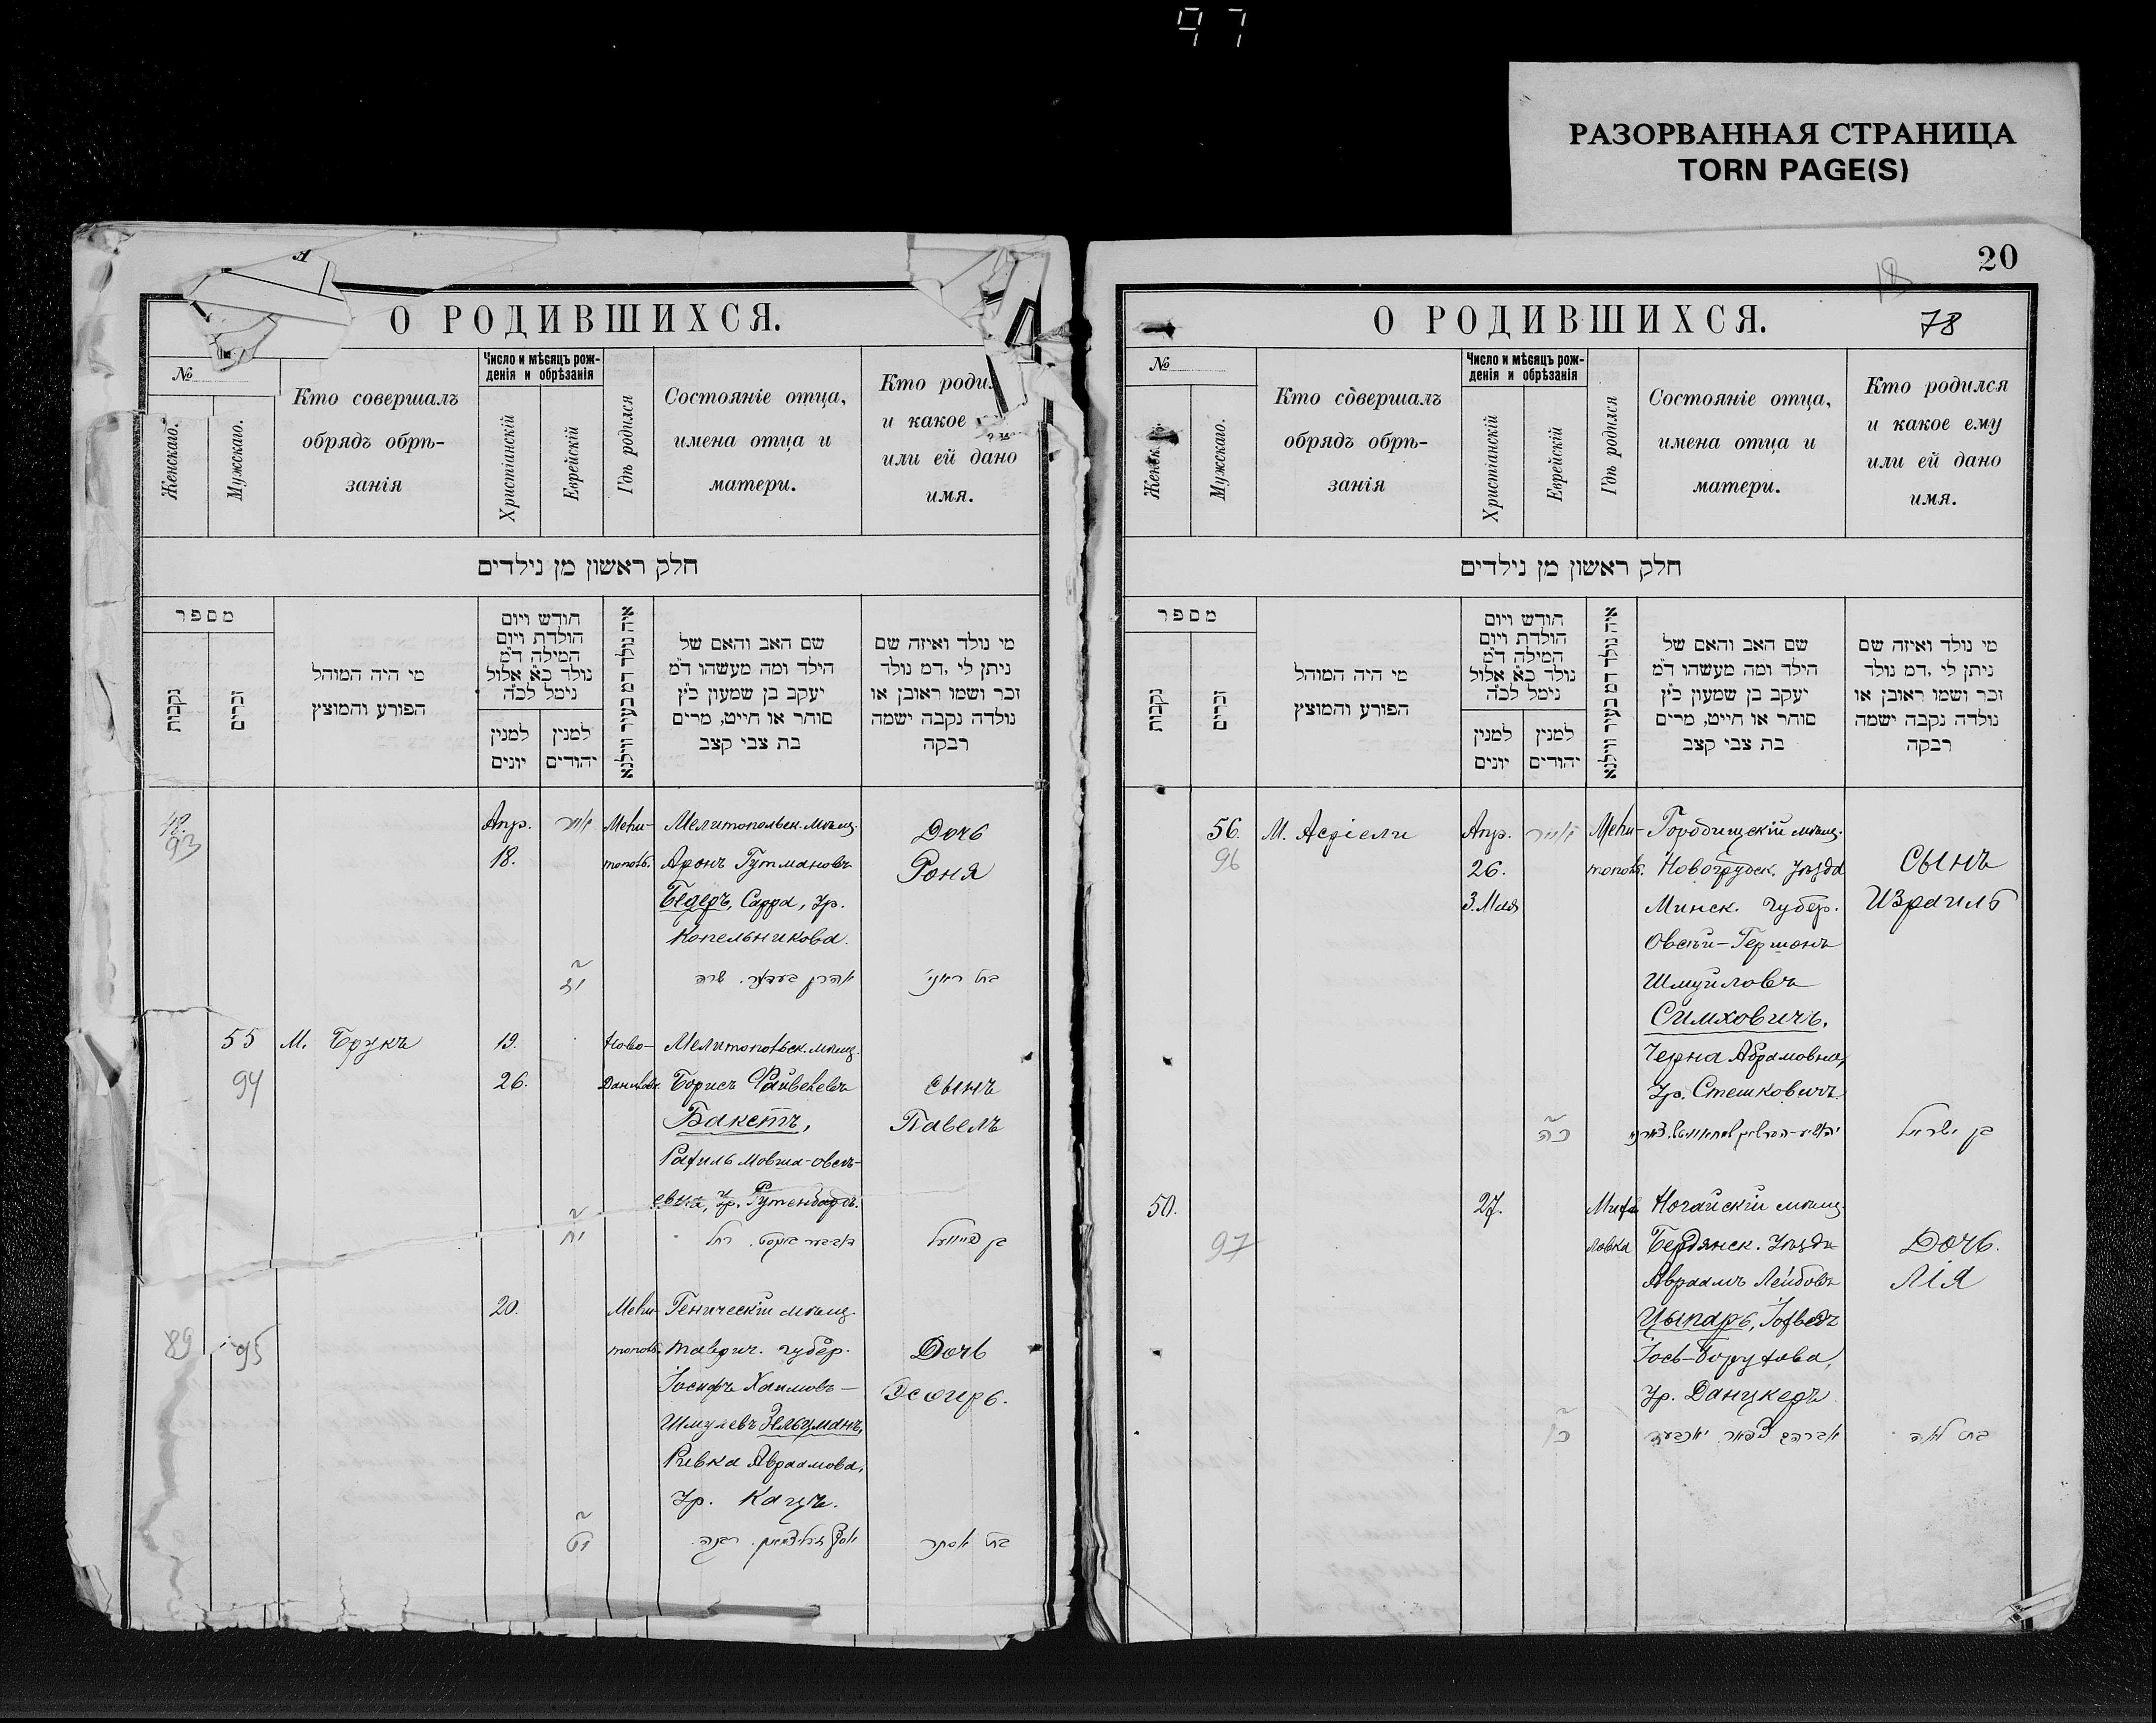 97
РАЗОРВАННАЯ СТРАНИЦА
TORN PAGE(S)
О РОДИВШИХСЯ.
№
Женскаго.
Мужскаго.
Кто совершалъ
обрядъ обрѣ-
занія
Число и мѣсяцъ рож-
денія и обрѣзанія
Христіанскій
Еврейскій
Гдѣ родился
Состояніе отца,
имена отца и
матери.
Кто роди
и какое
или ей дано
имя.
חלק ראשון מן נילדים
מספר
נקבות
זכרים
מי היה המוהל
הפורע והמוצץ
חודש ויום
הולדת ויום
המילה ד״מ
נולד כא אלול
נימל לכ״ה
למנין
יונים
למנין
יהודים
איה נולד דמ בעיר ווילנא
שם האב והאם של
הילד ומה מעשהו ד״מ
יעקב בן שמעון כ״ץ
סוחר או חייט, מרים
בת צבי קצב
מי נולד ואיזה שם
ניתן לי, דמ נולד
זכר ושמו ראובן או
נולדה נקבה ישמה
רבקה
48.
93
Апр.
18.
אייר
Мели-
тополь.
Мелитопольск. мѣщ.
Аронъ Гутмановъ
Бедеръ, Сарра, Ур.
Копельникова.
Дочь
Роня
יז
אהרן בעדער. שרה
בת ראניי
55
94
М. Брукъ
19.
26.
Ново-
Мелитопольск. мѣщ.
Борисъ Файвелевъ
Бакстъ,
Рахиль Мовша-Овсѣ-
евна, Ур. Гутенбергъ.
сынъ
Павелъ
יח
בן פייוויל
89
95
20.
Мели-
тополь.
Геническій мѣщ.
Таврич. губер.
Іосифъ Хаимовъ-
Шмулевъ Зельцманъ,
Ривка Авраамова,
Ур. Кацъ.
Дочь
Эсѳирь.
יט
בת אסתר
20
18
78
О РОДИВШИХСЯ.
№
Женск
Мужскаго.
Кто совершалъ
обрядъ обрѣ-
занія
Число и мѣсяцъ рож-
денія и обрѣзанія
Христіанскій
Еврейскій
Гдѣ родился
Состояніе отца,
имена отца и
матери.
Кто родился
и какое ему
или ей дано
имя.
חלק ראשון מן נילדים
מספר
נקבות
זכרים
מי היה המוהל
הפורע והמוצץ
חודש ויום
הולדת ויום
המילה ד״מ
נולד כא אלול
נימל לכ״ה
למנין
יונים
למנין
יהודים
איה נולד דמ בעיר ווילנא
שם האב והאם של
הילד ומה מעשהו ד״מ
יעקב בן שמעון כ״ץ
סוחר או חייט, מרים
בת צבי קצב
מי נולד ואיזה שם
ניתן לי, דמ נולד
זכר ושמו ראובן או
נולדה נקבה ישמה
רבקה
56.
96
М. Асріели
Апр.
26.
3. Мая
אייר
Мели-
тополь.
Городищскій мѣщ.
Новогрудск. Уѣзда
Минск. губер.
Овсѣй-Гершонъ
Шмуйловъ
Симховичъ,
Черна Абрамовна,
Ур. Стешковичъ.
сынъ
Израиль
כה
בן ישראל
50.
97
27.
Миха
ловка
Ногайскій мѣщ.
Бердянск. Уѣзда
Авраамъ Лейбовъ
Цыпаръ, Іохведъ
Іось-Борухова,
Ур. Данцкеръ
Дочь.
Лія
כו
אברהם ציפאר. יאכבעד
בת לאה